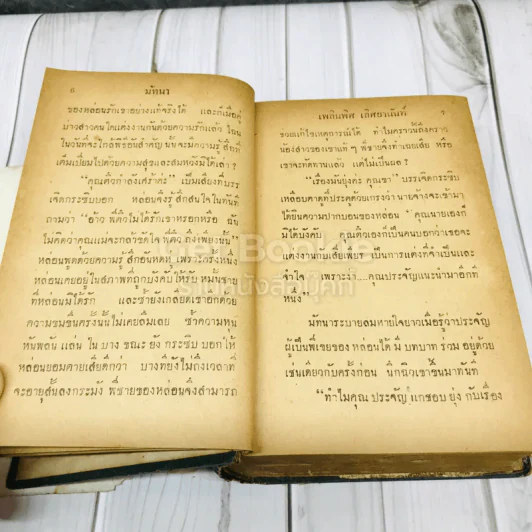 ๖ มัทนา
ของหล่อนรักเขาอย่างแท้จริงได้ และก็เมื่อคู่
บ่าวสาวคนใดแต่งงานกันด้วยความรักแล้ว ไฉน
ในวันที่จะใกล้พิธีอันสำคัญนั้นจะมีความรู้สึกที่
เต็มเปี่ยมไปด้วยความสุขและสมหวังมิได้เล่า ?
“คุณติ๋วกำลังเศร้าค่ะ” เป็นเสียงที่บรร
เจิดกระซิบบอก หล่อนจึงรู้สึกสนใจในทันที
ถามว่า “อ้าว พี่ติ๋วไม่ได้รักเขาหรอกหรือ ฉัน
ไม่คิดว่าคุณแม่จะกล้าขัดใจ พี่ติ๋วถึงเพียงนั้น”
หล่อนพูดด้วยความรู้สึกอันหดหู่ เพราะครั้งหนึ่ง
หล่อนเคยอยู่ในสภาพที่ถูกบังคับให้รับหมั้นชาย
ที่หล่อนมิได้รัก และซ้ำยังเกลียดเขาอีกด้วย
ความขมขื่นครั้งนั้นไม่เคยลืมเลย ซ้ำความหุน
หันพลันแล่น ในบางขณะยังกระซิบบอกให้
หล่อนยอมตายเสียดีกว่า บางทียังไม่ถึงเวลาที่
จะอายุสั้นลงกระมัง พี่ชายของหล่อนจึงสามารถ
เพลินพิศ เลิศยวณิโก ๗
ช่วยแก้ไขเหตุการณ์ได้ ทำไมคราวนี้ถึงคราว
น้องสาวของเขาแท้ ๆ พี่ชายจึงทำเฉยเสีย หรือ
เขาจะคัดค้านแล้ว แต่ไม่เป็นผล ?
“เรื่องมันยุ่งค่ะ คุณขา” บรรเจิดกระซิบ
เหลือบตาดูที่ประตูด้วยเกรงว่า นายจ้างจะเข้ามา
ได้ยินความปากบอนของหล่อน “คุณนายเองก็
มิได้บังคับ คุณติ๋วเองก็เป็นคนบอกว่าชอบจะ
แต่งงานกับเสี่ยเพียร เป็นการแต่งที่จำเป็นและ
จำใจ เพราะงั้น คุณประจัญแนะนำมาอีกที
หนึ่ง”
มัทนาระบายลมหายใจยาวเมื่อรู้ว่าประจัญ
ผู้เป็นพี่เขยของหล่อนได้มีบทบาทร่วมอยู่ด้วย
เช่นเดียวกับครั้งก่อน นึกนิ่วเขาขึ้นมาทันที
“ทำไมคุณประจัญ แกชอบยุ่งกับเรื่อง
The Bookie
ร้านหนังสือบุ๊คกี้